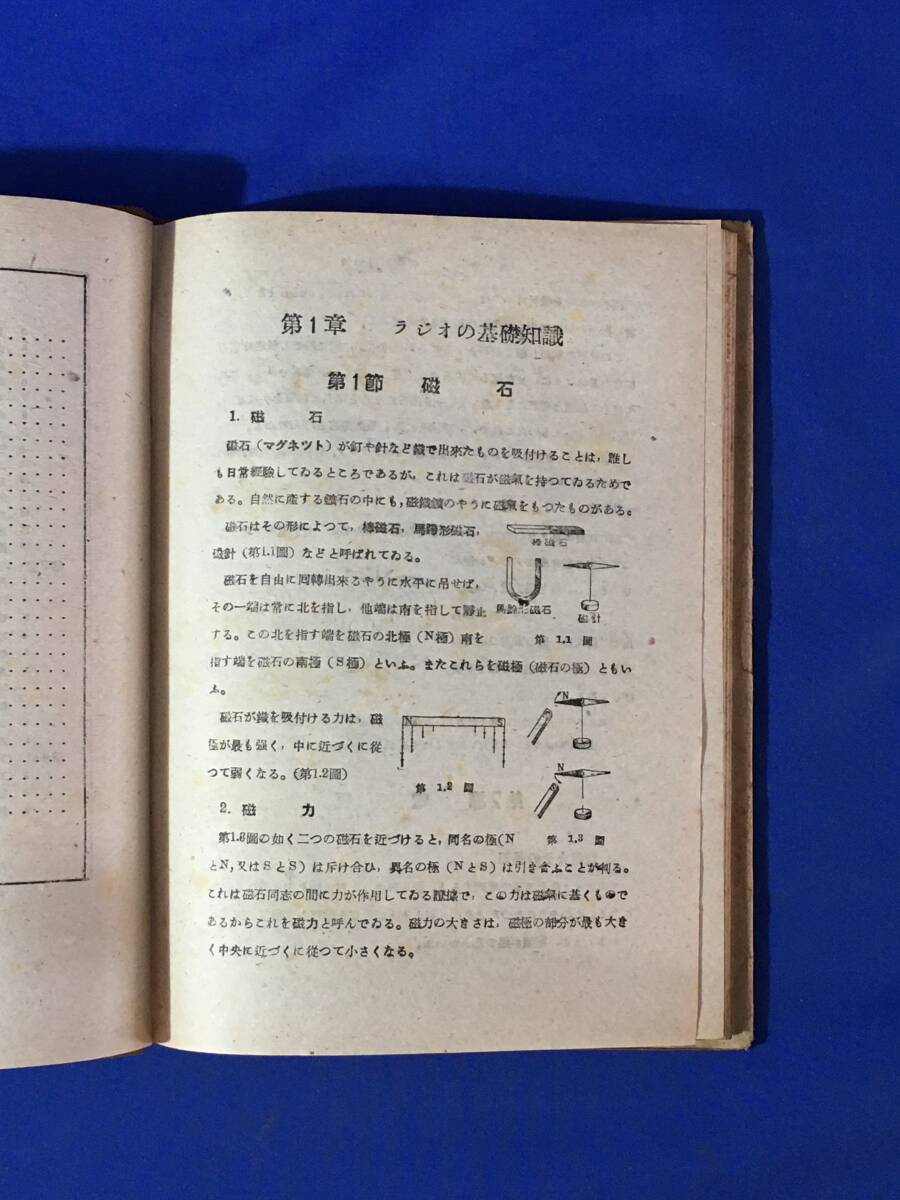 第1章　ラジオの基礎知識
第1節　磁　石
1. 磁　石
磁石(マグネツト)が釘や針など鐵で出來たものを吸付けることは，誰し
も日常經驗してゐるところであるが，これは磁石が磁氣を持つてゐるためで
ある。自然に產する鑛石の中にも，磁鐵鑛のやうに磁氣をもつたものがある。
磁石はその形によつて，棒磁石，馬蹄形磁石，
磁針(第1.1圖)などと呼ばれてゐる。
棒磁石
磁石を自由に回轉出來るやうに水平に吊せば，
その一端は常に北を指し，他端は南を指して靜止
馬蹄形磁石
磁針
する。この北を指す端を磁石の北極(N極)南を
第 1.1 圖
指す端を磁石の南極(S極)といふ。またこれらを磁極(磁石の極)ともい
ふ。
磁石が鐵を吸付ける力は，磁
極が最も强く，中に近づくに從
つて弱くなる。(第1.2圖)
N S
第 1.2 圖
N
N
2. 磁　力
第1.3圖の如く二つの磁石を近づけると，同名の極(N
第 1.3 圖
とN,又はSとS)は斥け合ひ，異名の極(NとS)は引き合ふことが判る。
これは磁石同志の間に力が作用してゐる證據で，この力は磁氣に基くもので
あるからこれを磁力と呼んでゐる。磁力の大きさは，磁極の部分が最も大き
く中央に近づくに從つて小さくなる。